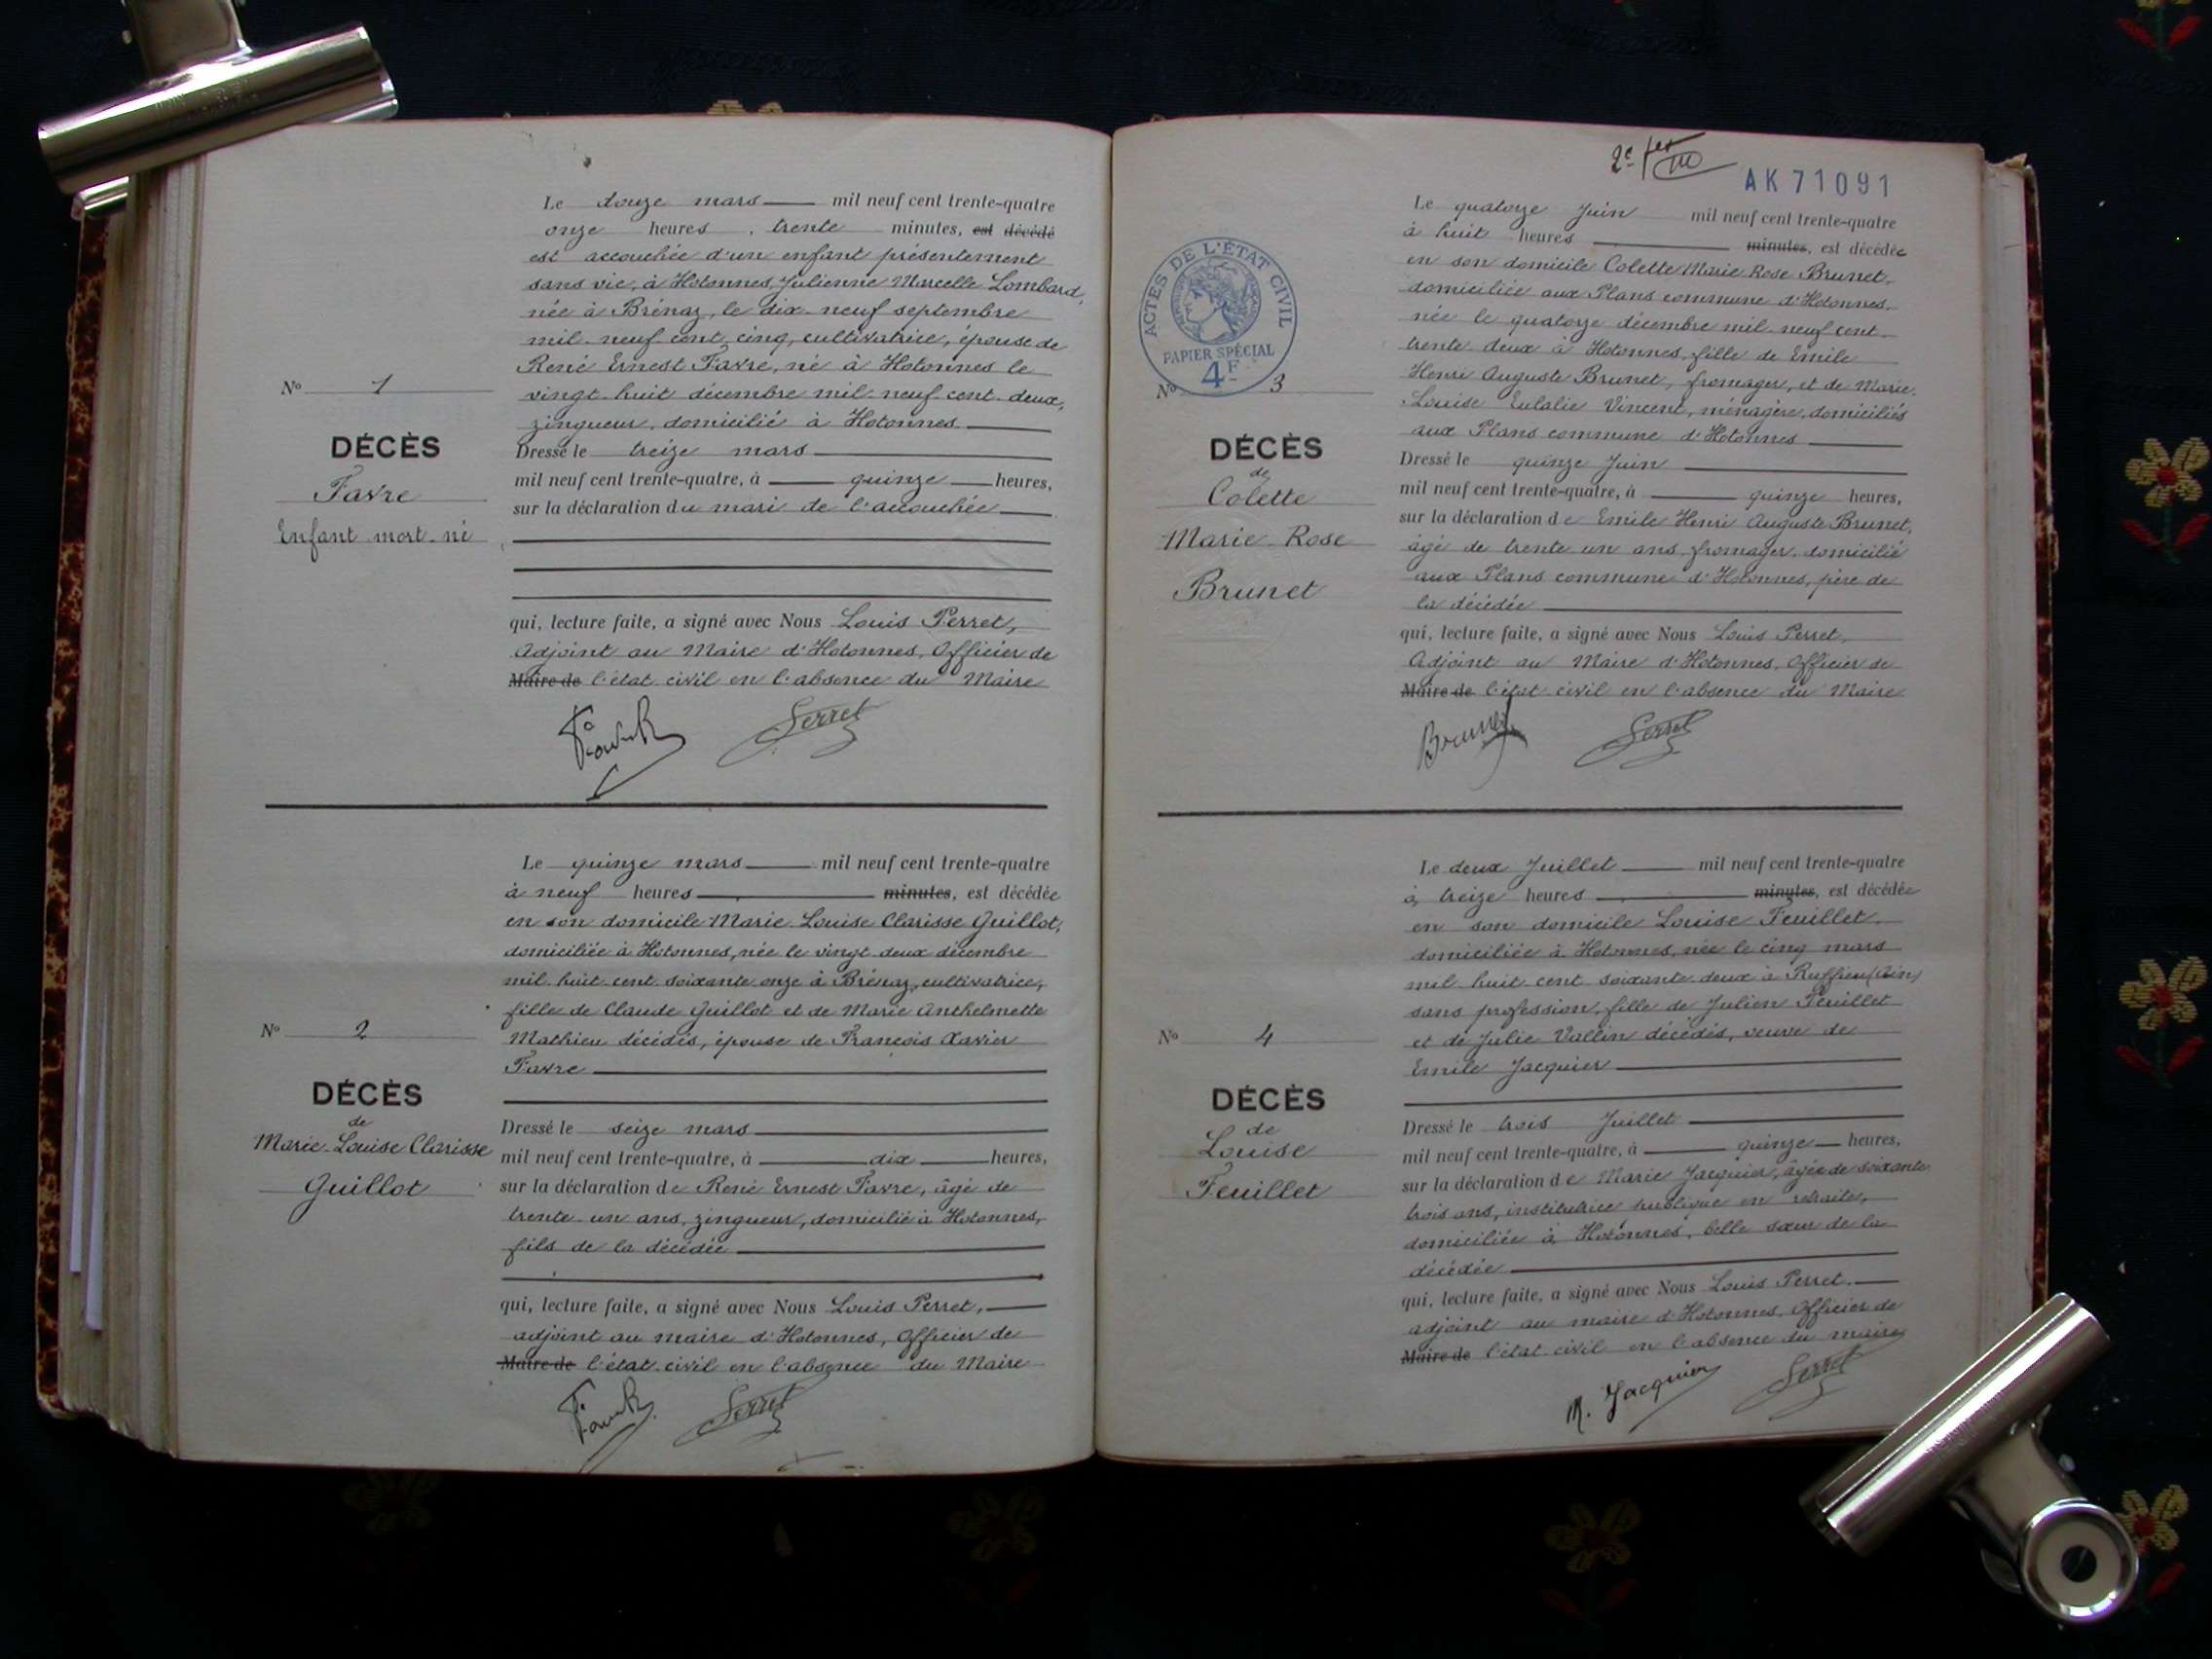 Le douze mars mil neuf cent trente-quatre
onze heures trente minutes, est décédé
est accouchée d'un enfant présentement
sans vie, à Hotonnes, Julienne Marcelle Lombard,
née à Brénaz, le dix-neuf septembre
mil neuf cent cinq, cultivatrice, épouse de
René Ernest Favre, né à Hotonnes le
vingt huit décembre mil neuf cent deux,
zingueur, domicilié à Hotonnes
Dressé le treize mars
mil neuf cent trente-quatre, à quinze heures,
sur la déclaration du mari de l'accouchée
qui, lecture faite, a signé avec Nous Louis Perret,
Adjoint au Maire d'Hotonnes, Officier de
Maire de l'état civil en l'absence du Maire
Perret
No 1
DÉCÈS
Favre
Enfant mort-né
Le quinze mars mil neuf cent trente-quatre
à neuf heures minutes, est décédée
en son domicile Marie Louise Clarisse Guillot,
domiciliée à Hotonnes, née le vingt deux décembre
mil huit cent soixante onze à Brénaz, cultivatrice,
fille de Claude Guillot et de Marie Anthelmette
Mathieu décédés, épouse de François Xavier
Favre
Dressé le seize mars
mil neuf cent trente-quatre, à dix heures,
sur la déclaration de René Ernest Favre, âgé de
trente un ans, zingueur, domicilié à Hotonnes,
fils de la décédée
qui, lecture faite, a signé avec Nous Louis Perret,
adjoint au maire d'Hotonnes, Officier de
Maire de l'état civil en l'absence du Maire
Perret
No 2
DÉCÈS
de
Marie Louise Clarisse
Guillot
AK 71091
ACTES DE L'ÉTAT CIVIL
PAPIER SPÉCIAL
4F
Le quatorze Juin mil neuf cent trente-quatre
à huit heures minutes, est décédée
en son domicile Colette Marie Rose Brunet,
domiciliée aux Plans commune d'Hotonnes,
née le quatorze décembre mil neuf cent
trente deux à Hotonnes, fille de Emile
Henri Auguste Brunet, fromager, et de Marie
Louise Eulalie Vincent, ménagère, domiciliés
aux Plans commune d'Hotonnes
Dressé le quinze Juin
mil neuf cent trente-quatre, à quinze heures,
sur la déclaration de Emile Henri Auguste Brunet,
âgé de trente un ans, fromager, domicilié
aux Plans commune d'Hotonnes, père de
la décédée
qui, lecture faite, a signé avec Nous Louis Perret,
Adjoint au Maire d'Hotonnes, Officier de
Maire de l'état civil en l'absence du Maire
Brunet Perret
No 3
DÉCÈS
de
Colette
Marie Rose
Brunet
Le deux Juillet mil neuf cent trente-quatre
à treize heures minutes, est décédée
en son domicile Louise Feuillet,
domiciliée à Hotonnes, née le cinq mars
mil huit cent soixante deux à Ruffieu (Ain)
sans profession, fille de Julien Feuillet
et de Julie Vallin décédés, veuve de
Emile Jacquier
Dressé le trois Juillet
mil neuf cent trente-quatre, à quinze heures,
sur la déclaration de Marie Jacquier, âgée de soixante
trois ans, institutrice publique en retraite,
domiciliée à Hotonnes, belle sœur de la
décédée
qui, lecture faite, a signé avec Nous Louis Perret,
adjoint au maire d'Hotonnes, Officier de
Maire de l'état civil en l'absence du maire
M. Jacquier Perret
No 4
DÉCÈS
de
Louise
Feuillet